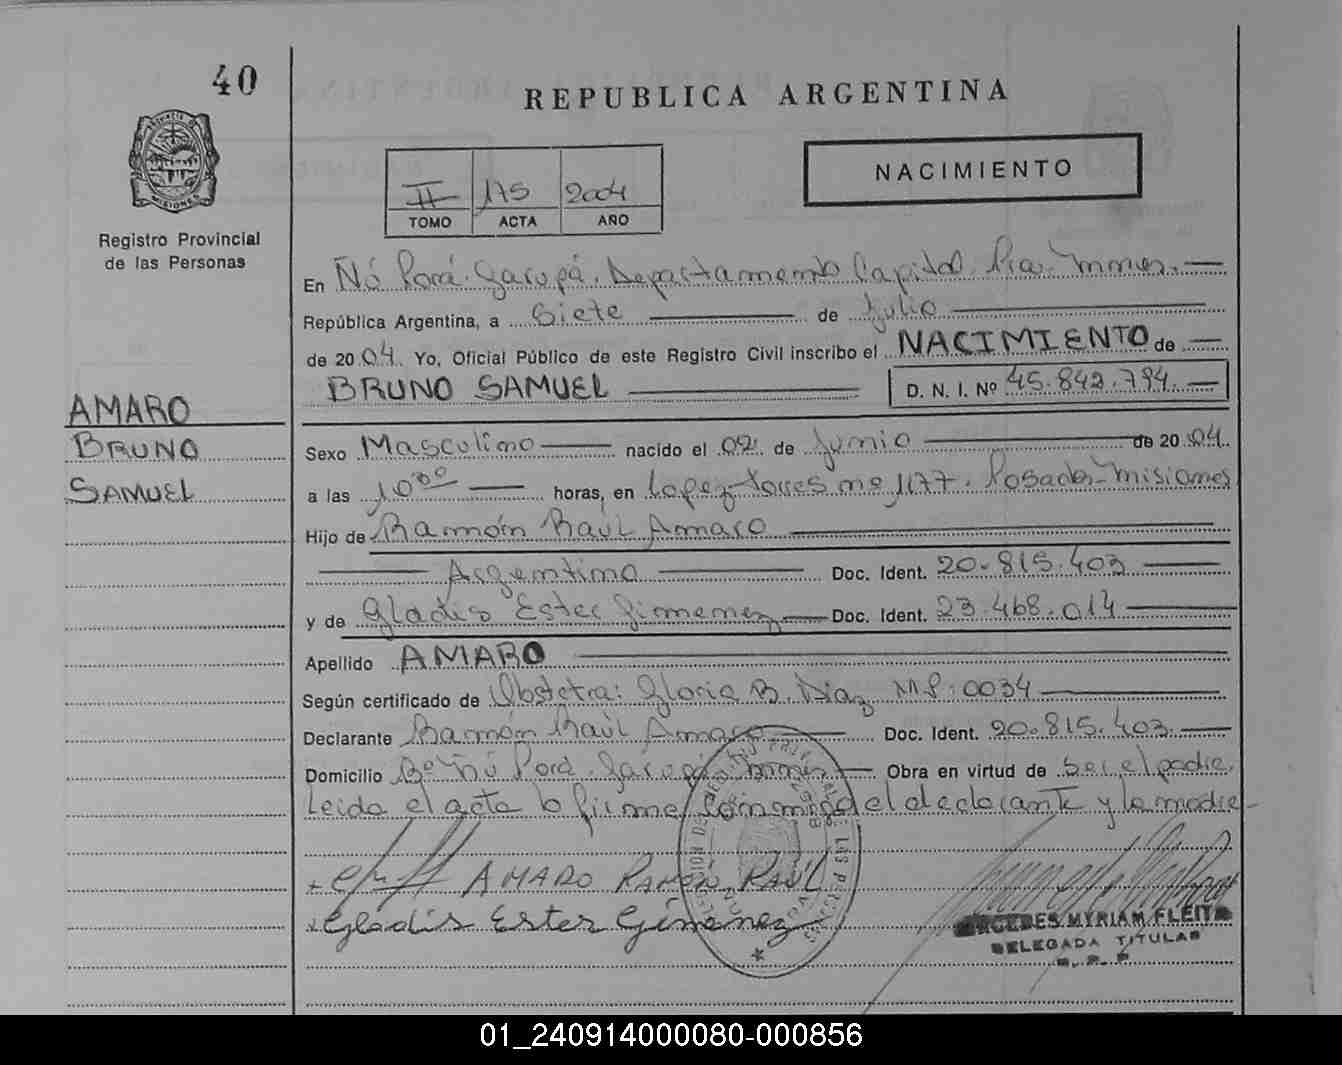 40
REPUBLICA ARGENTINA
MISIONES
Registro Provincial
de las Personas
II 175 2004
TOMO ACTA AÑO
NACIMIENTO
En Ñú Porá. Garupá. Departamento Capital. Pcia. Mnes.
República Argentina, a Siete de Julio
de 2004. Yo, Oficial Público de este Registro Civil inscribo el NACIMIENTO de
BRUNO SAMUEL D. N. I. Nº 45.842.794.
AMARO
BRUNO
SAMUEL
Sexo Masculino nacido el 02 de Junio de 2004.
a las 10³⁰ horas, en Lopez Torres nº 1177. Posadas-Misiones
Hijo de Ramón Raúl Amaro
Argentino Doc. Ident. 20.815.403
y de Gladis Ester Gimenez Doc. Ident. 23.468.014
Apellido AMARO
Según certificado de Obstetra: Gloria B. Diaz MP: 0034
Declarante Ramón Raúl Amaro Doc. Ident. 20.815.403.
Domicilio Bº Ñú Porá. Garupá. Mnes Obra en virtud de ser el padre.
Leída el acta la firma conmigo el declarante y la madre
AMARO RAMÓN RAÚL
Gladis Ester Gimenez
MERCEDES MYRIAM FLEITA
DELEGADA TITULAR
R. P. P.
01_240914000080-000856